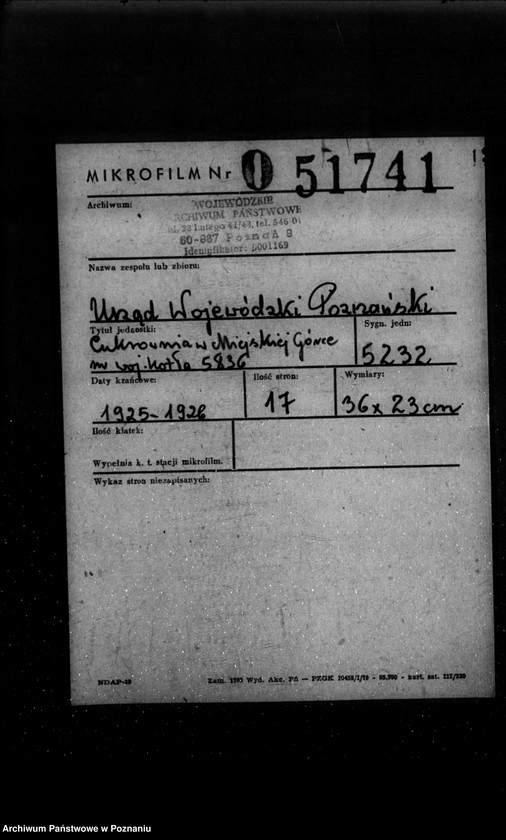 MIKROFILM Nr O 51741
Archiwum:
WOJEWÓDZKIE
ARCHIWUM PAŃSTWOWE
ul. 23 Lutego 41/43, tel. 546-01
60-967 Poznań 9
Identyfikator: 0001169
Nazwa zespołu lub zbioru:
Urząd Wojewódzki Poznański
Tytuł jednostki:
Cukrownia w Miejskiej Górce
nr woj. kotła 5836
Sygn. jedn:
5232
Daty krańcowe:
1925-1926
Ilość stron:
17
Wymiary:
36 x 23 cm
Ilość klatek:
Wypełnia k. t. stacji mikrofilm.
Wykaz stron niezapisanych:
NDAP-19
Zam. Wyd. Akc. Pń — PZGK
Archiwum Państwowe w Poznaniu